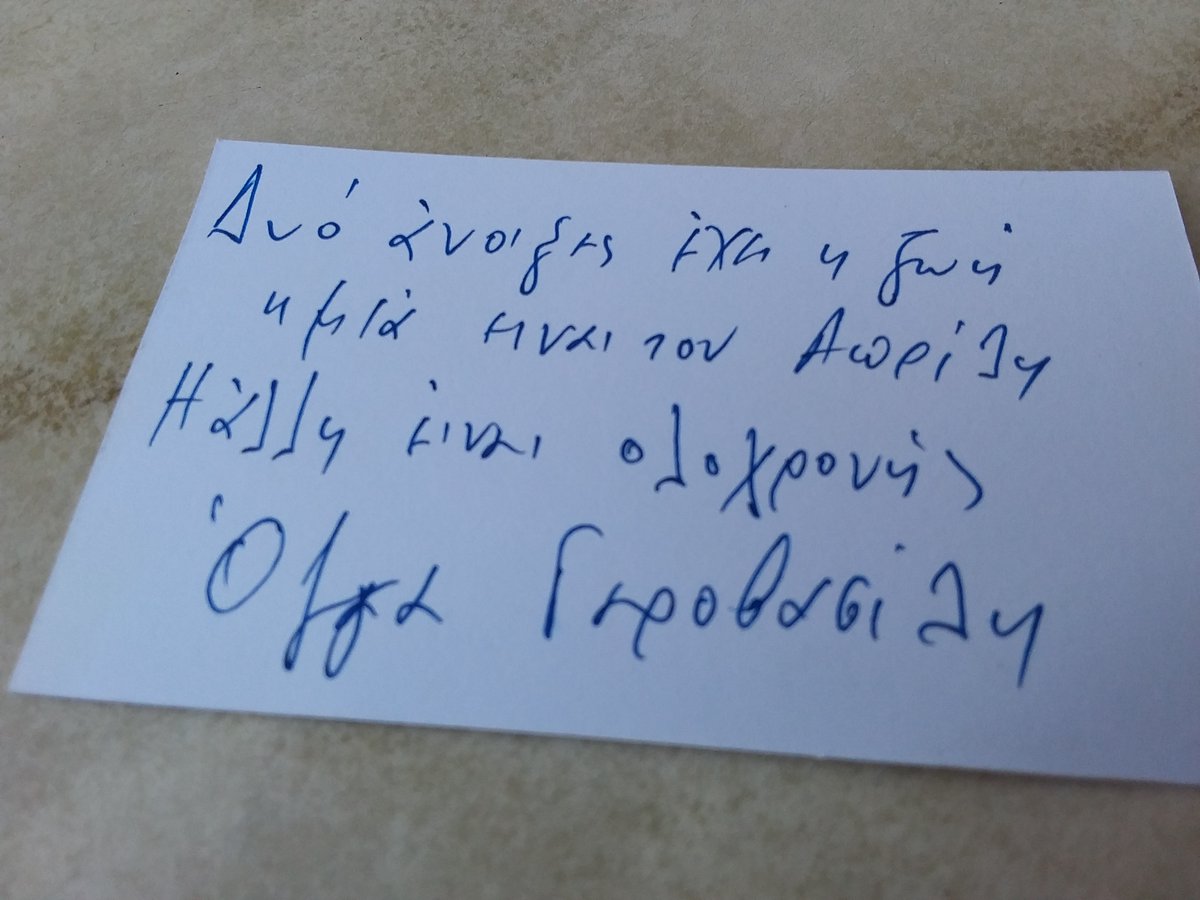 Δυό άνοιξες έχει η ζωή
η μιά ειναι του Απρίλη
Η άλλη είναι ολοχρονής
Όλγα Γεροβασίλη